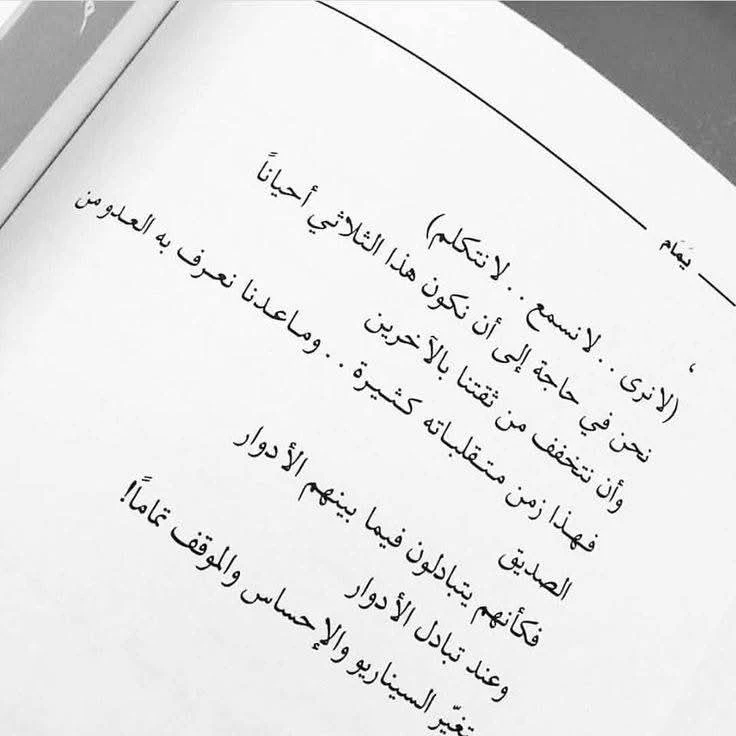 يَمَام
،
(لا نرى . . لا نسمع . . لا نتكلم)
نحن في حاجة إلى أن نكون هذا الثلاثي أحياناً
وأن نتخفف من ثقتنا بالآخرين
فهذا زمن متقلباته كثيرة . . وماعدنا نعرف به العدو من
الصديق
فكأنهم يتبادلون فيما بينهم الأدوار
وعند تبادل الأدوار
تغيّر السيناريو والإحساس والموقف تماماً!